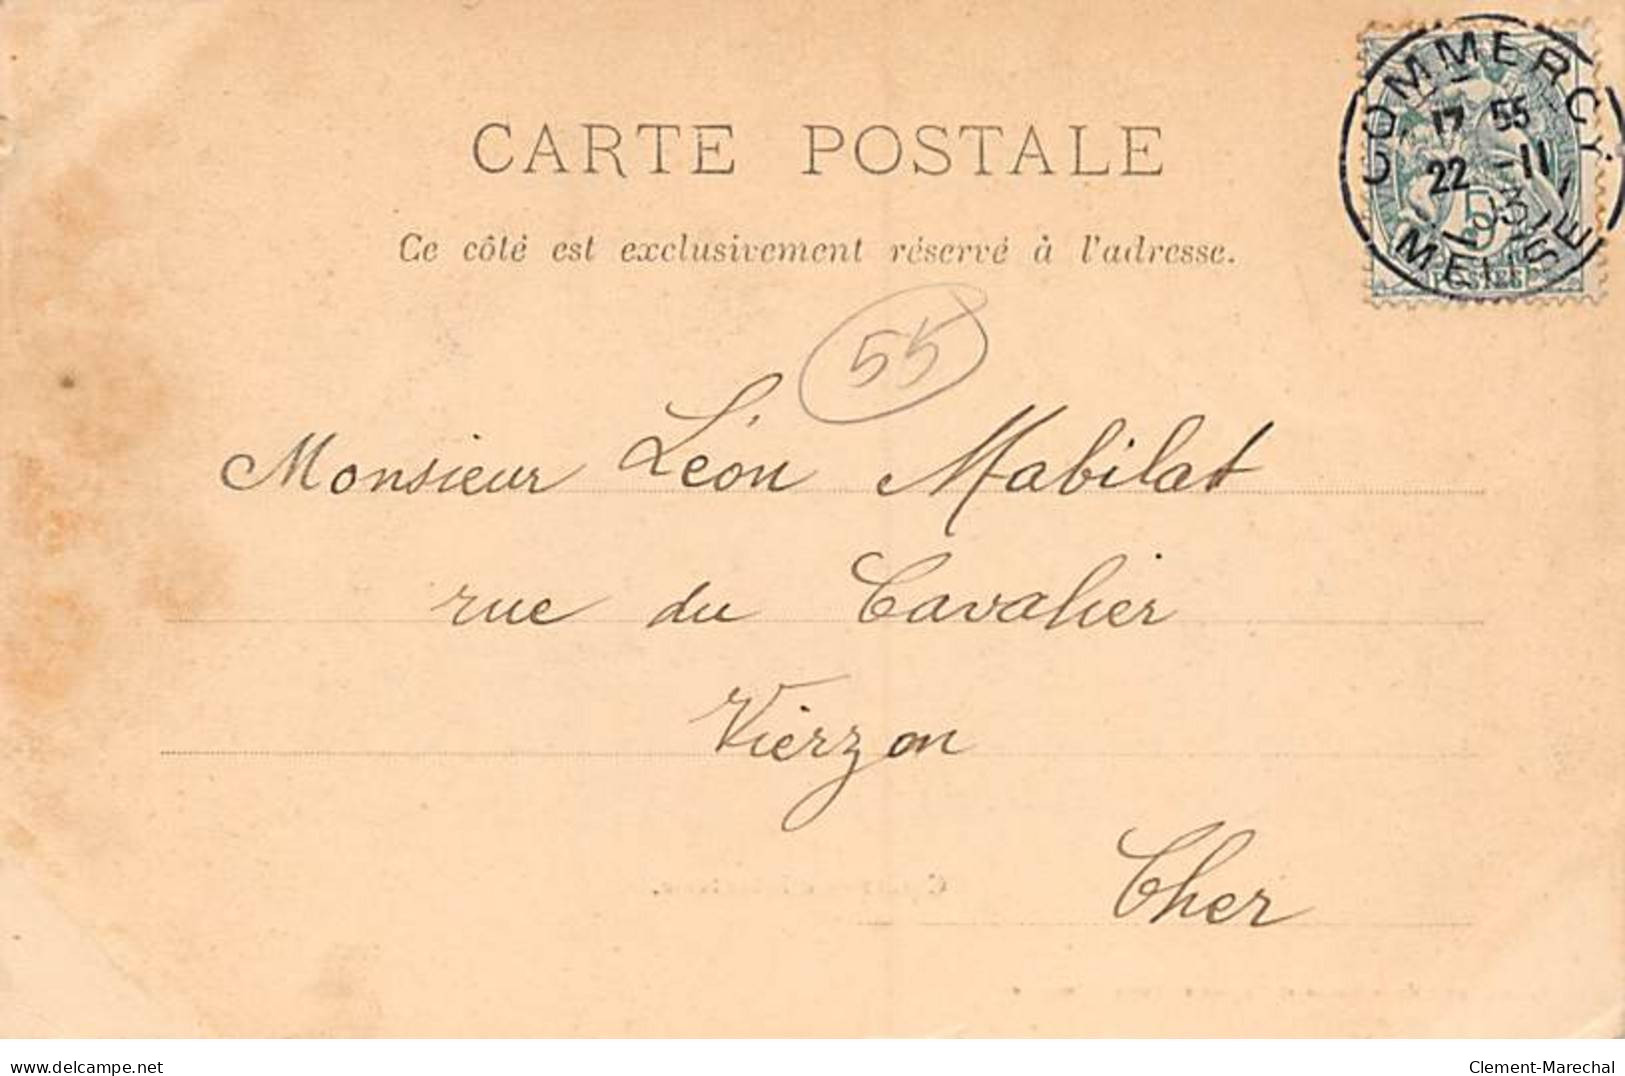 CARTE POSTALE
Ce côté est exclusivement réservé à l'adresse.
COMMERCY
17 55
22 -11
03
MEUSE
5
POSTES
55
Monsieur Léon Mabilat
rue du Cavalier
Vierzon
Cher
delcampe.net
Clement-Marechal